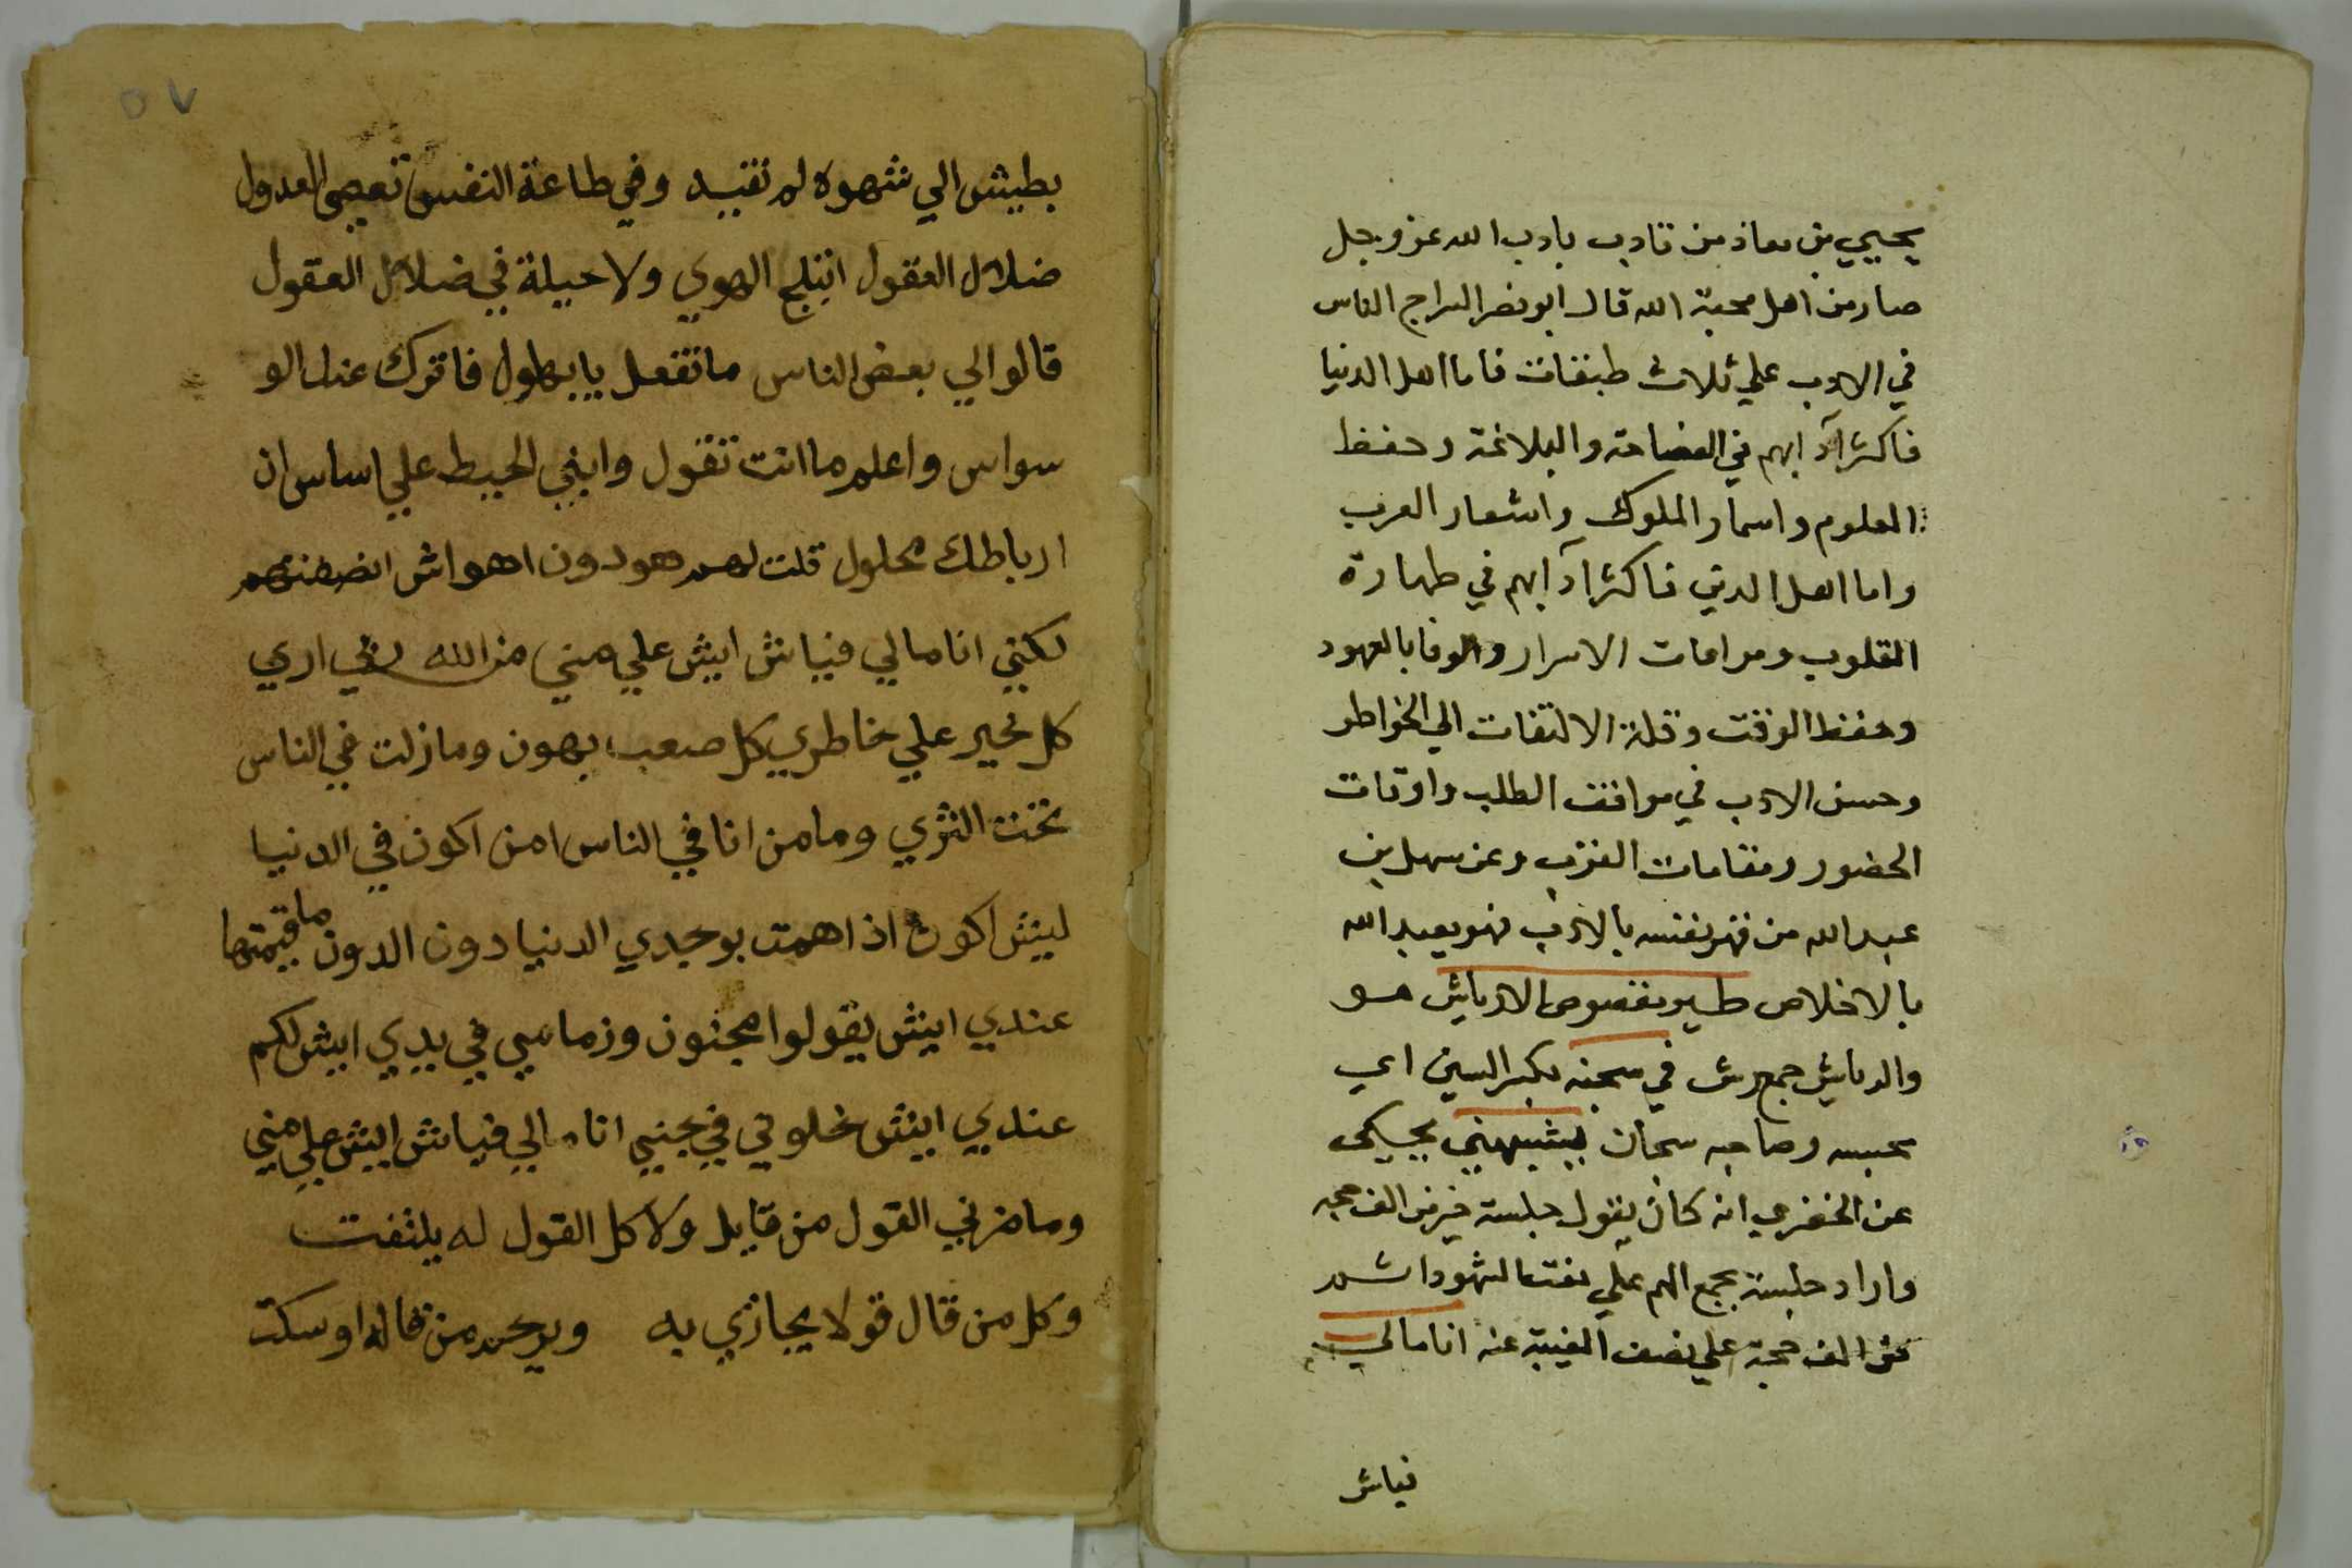 يحيي بن معاذ من تادب بادب الله عز وجل
صار من اهل محبة الله قال ابو نصر السراج الناس
في الادب علي ثلاث طبقات فاما اهل الدنيا
فاكثر آدابهم في الفصاحة والبلاغة وحفظ
العلوم واسمار الملوك واشعار العرب
واما اهل الدين فاكثر آدابهم في طهارة
القلوب ومراعات الاسرار والوفا بالعهود
وحفظ الوقت وقلة الالتفات الي الخواطر
وحسن الادب في مواقف الطلب واوقات
الحضور ومقامات القرب وعن سهل بن
عبد الله من قهر نفسه بالادب فهو يعبد الله
بالاخلاص طير مقصوص الارياش هو
والرياش جمع ريش في سجنه بكسر السين اي
محبسه وصاحبه سجان يشبهني يحكي
عن الخفري انه كان يقول جلسة خير من الف حجه
واراد جلسة بجمع الهم علي الشهود
من الف حجة علي الغيبة عنه انا مالي
فياش
٥٧
بطيش الي شهوه لم تفيد وفي طاعة النفس تعصي العدول
ضلال العقول اتبلج الهوي ولا حيلة في ضلال العقول
قالوا لي بعض الناس ما تفعل يا بهلول فاترك عنك الو
سواس واعلم ما انت تقول وابني الحيط علي اساس ان
ارباطك محلول قلت لهم هودون اهواش
لكني انا مالي فياش ايش علي مني من الله اري
كل خير علي خاطري كل صعب بهون وما زلت في الناس
تحت الثري وما من انا في الناس امن اكون في الدنيا
ليش اكون اذا اهمت بوجدي الدنيا دون الدون ما قيمتها
عندي ايش يقولوا مجنون وزمامي في يدي ايش لكم
عندي ايش خلوتي في جنبي انا مالي فياش ايش علي مني
وما ضرني القول من قايل ولا كل القول له يلتفت
وكل من قال قولا يجازي به ويرحم من قاله او سكت